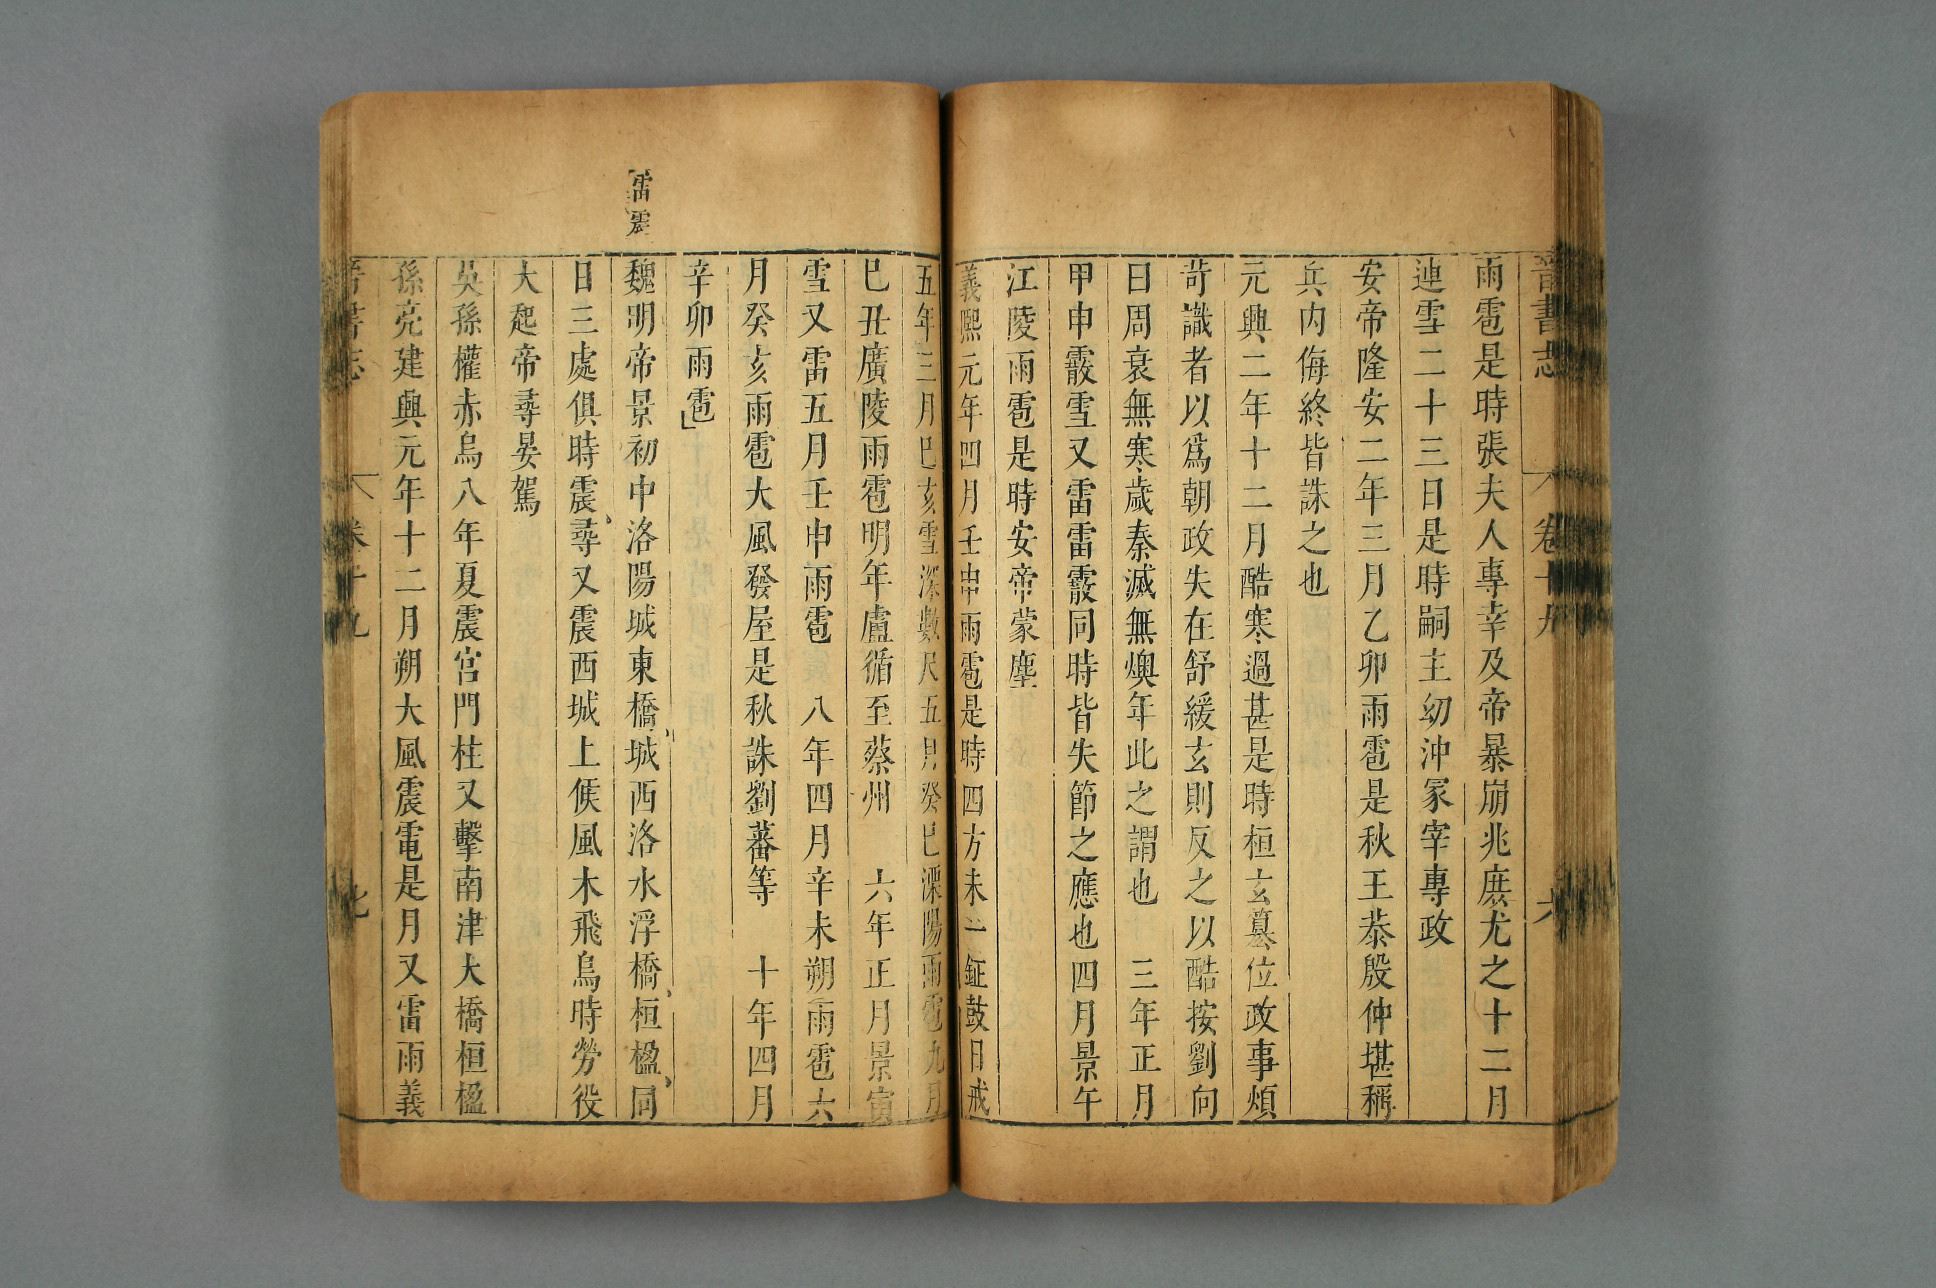 晉書志　卷十九　六
雨雹是時張夫人專幸及帝暴崩兆庶尤之十二月
連雪二十三日是時嗣主幼沖冢宰專政
安帝隆安二年三月乙卯雨雹是秋王恭殷仲堪稱
兵内侮終皆誅之也
元興二年十二月酷寒過甚是時桓玄簒位政事煩
苛識者以爲朝政失在舒緩玄則反之以酷按劉向
曰周衰無寒歲秦滅無燠年此之謂也　三年正月
甲申霰雪又雷雷霰同時皆失節之應也四月景午
江陵雨雹是時安帝蒙塵
義熙元年四月壬申雨雹是時四方未一鉦鼓日戒
五年三月己亥雪深數尺五月癸巳溧陽雨雹九月
巳丑廣陵雨雹明年盧循至蔡州　六年正月景寅
雪又雷五月壬申雨雹　八年四月辛未朔雨雹六
月癸亥雨雹大風發屋是秋誅劉蕃等　十年四月
辛卯雨雹
雷震
魏明帝景初中洛陽城東橋城西洛水浮橋桓楹同
日三處俱時震尋又震西城上候風木飛烏時勞役
大起帝尋晏駕
吳孫權赤烏八年夏震宮門柱又擊南津大橋桓楹
孫亮建興元年十二月朔大風震電是月又雷雨義
晉書志　卷十九　七